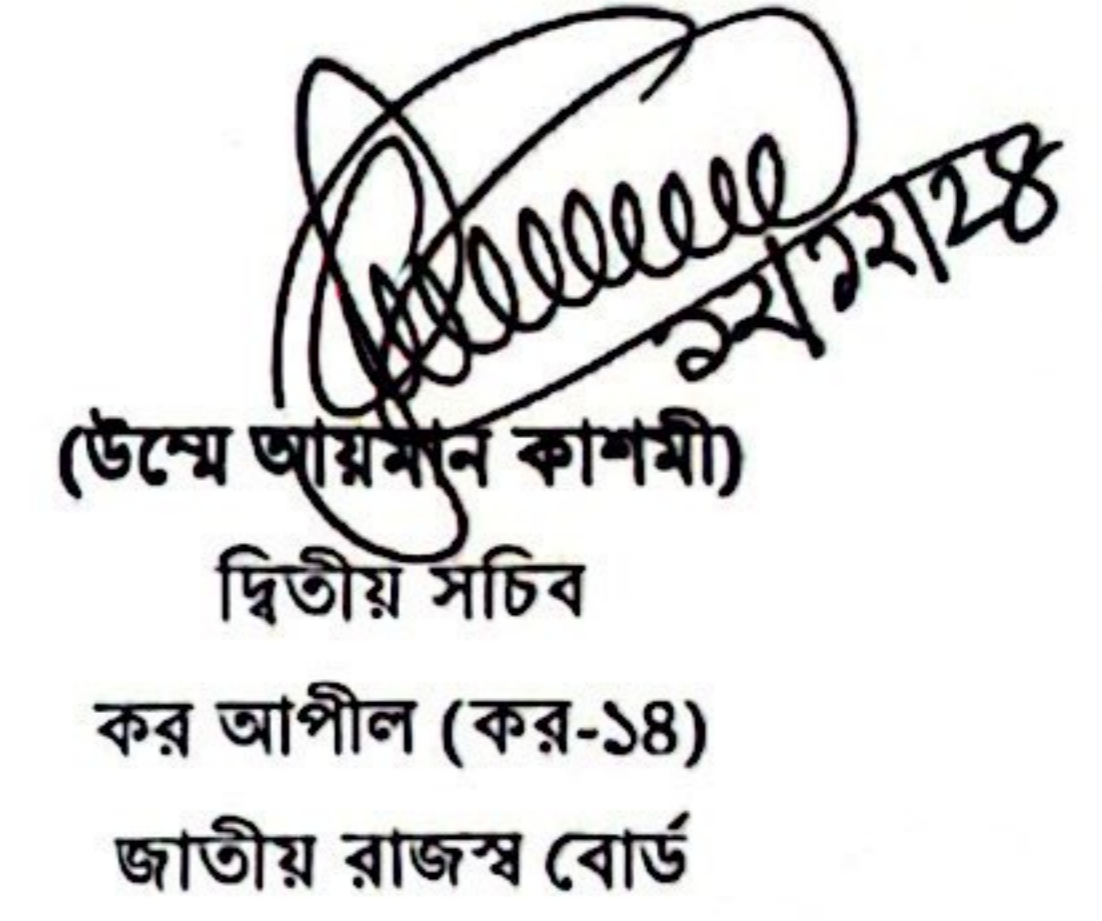 ১২/১২/২৪
(উম্মে আয়মান কাশমী)
দ্বিতীয় সচিব
কর আপীল (কর-১৪)
জাতীয় রাজস্ব বোর্ড